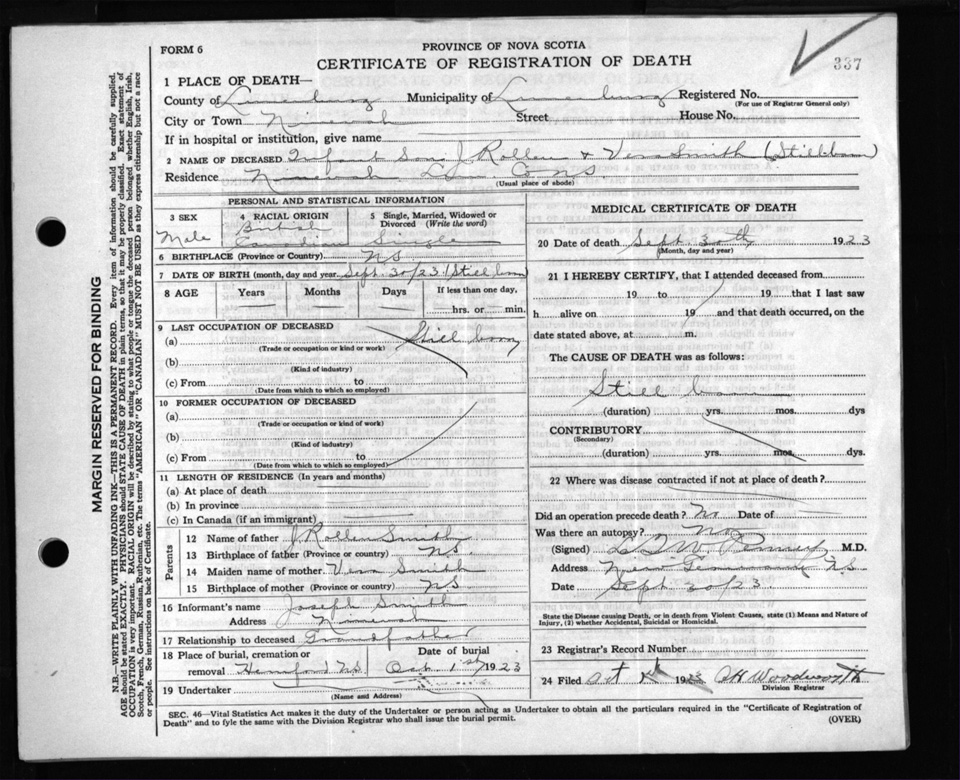 337
FORM 6
PROVINCE OF NOVA SCOTIA
CERTIFICATE OF REGISTRATION OF DEATH
1 PLACE OF DEATH—
County of Lunenburg Municipality of Lunenburg Registered No.
(For use of Registrar General only)
City or Town Ninevah Street House No.
If in hospital or institution, give name
2 NAME OF DECEASED Infant Son J Rollen & Vera Smith (Stillborn)
Residence Ninevah Lun. Co NS.
(Usual place of abode)
PERSONAL AND STATISTICAL INFORMATION
3 SEX 4 RACIAL ORIGIN 5 Single, Married, Widowed or
Divorced (Write the word)
Male British Canadian Single
6 BIRTHPLACE (Province or Country) NS
7 DATE OF BIRTH (month, day and year) Sept. 30/23 (Stillborn)
8 AGE Years Months Days If less than one day,
hrs. or min.
9 LAST OCCUPATION OF DECEASED
(a) Still born
(Trade or occupation or kind or work)
(b)
(Kind of industry)
(c) From to
(Date from which to which so employed)
10 FORMER OCCUPATION OF DECEASED
(a)
(Trade or occupation or kind of work)
(b)
(Kind of industry)
(c) From to
(Date from which to which so employed)
11 LENGTH OF RESIDENCE (In years and months)
(a) At place of death
(b) In province
(c) In Canada (if an immigrant)
Parents
12 Name of father J Rollen Smith
13 Birthplace of father (Province or country) NS.
14 Maiden name of mother Vera Smith
15 Birthplace of mother (Province or country) NS
16 Informant's name Joseph Smith
Address Ninevah
17 Relationship to deceased Grandfather
18 Place of burial, cremation or Date of burial
removal Hemford NS Oct 1st 1923
19 Undertaker
(Name and Address)
MEDICAL CERTIFICATE OF DEATH
20 Date of death Sept 30th 1923
(Month, day and year)
21 I HEREBY CERTIFY, that I attended deceased from
19 to 19 that I last saw
h alive on 19 and that death occurred, on the
date stated above, at m.
The CAUSE OF DEATH was as follows:
Still born
(duration) yrs. mos. dys
CONTRIBUTORY
(Secondary)
(duration) yrs. mos. dys.
22 Where was disease contracted if not at place of death?
Did an operation precede death? No Date of
Was there an autopsy? No
(Signed) M.D.
Address New Germany NS
Date Sept 30/23
State the Disease causing Death, or in death from Violent Causes, state (1) Means and Nature of
Injury, (2) whether Accidental, Suicidal or Homicidal.
23 Registrar's Record Number
24 Filed Oct 1923 Woodworth
Division Registrar
SEC. 46—Vital Statistics Act makes it the duty of the Undertaker or person acting as Undertaker to obtain all the particulars required in the "Certificate of Registration of
Death" and to fyle the same with the Division Registrar who shall issue the burial permit.
(OVER)
MARGIN RESERVED FOR BINDING
N.B.—WRITE PLAINLY WITH UNFADING INK—THIS IS A PERMANENT RECORD. Every item of information should be carefully supplied.
AGE should be stated EXACTLY. PHYSICIANS should STATE CAUSE OF DEATH in plain terms, so that it may be properly classified. Exact statement of
OCCUPATION is very important. RACIAL ORIGIN will be described by stating to what people or tongue the deceased person belonged whether English, Irish,
Scotch, French, German, Russian, Ruthenian, etc. The terms "AMERICAN" OR "CANADIAN" MUST NOT BE USED as they express citizenship but not a race
or people. See instructions on back of Certificate.